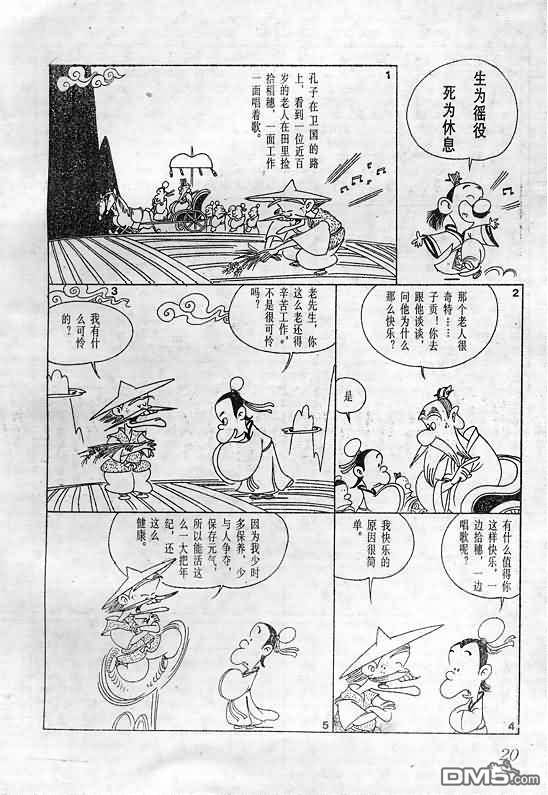 生为徭役
死为休息
1
孔子在卫国的路
上，看到一位近百
岁的老人在田里捡
拾稻穗，一面工作
一面唱着歌。
2
那个老人很
奇特……
子贡！你去
跟他谈谈，
问他为什么
那么快乐？
是
3
老先生，你
这么老还得
辛苦工作。
不是很可怜
吗？
我有什
么可怜
的？
有什么值得你
这样快乐，一
边拾穗，一边
唱歌呢？
我快乐的
原因很简
单。
4
因为我少时
多保养，少
与人争夺，
保存元气，
所以能活这
么一大把年
纪，还这么
健康。
5
20
DM5.com